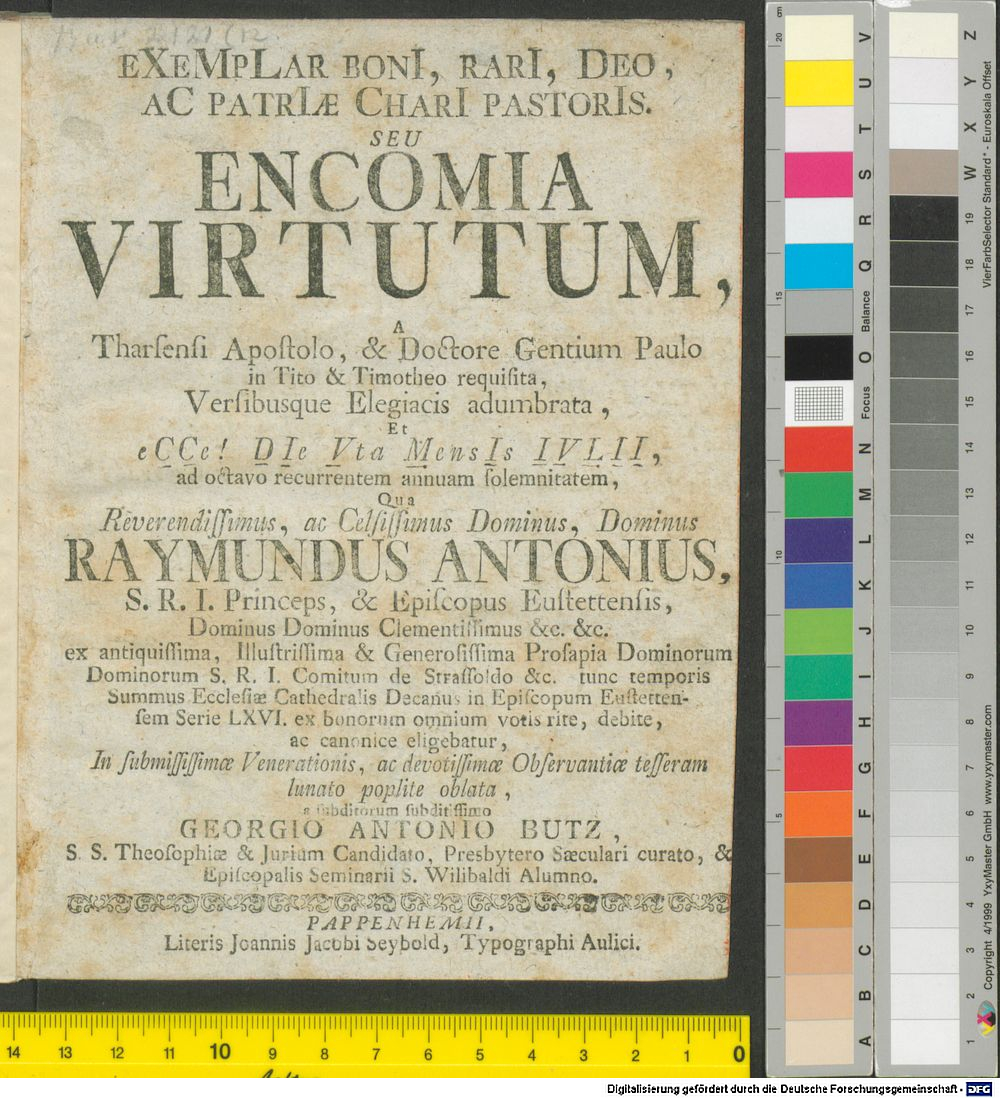 EXEMPLAR BONI, RARI, DEO,
AC PATRIÆ CHARI PASTORIS.
SEU
ENCOMIA
VIRTUTUM,
A
Tharſenſi Apoſtolo, & Doctore Gentium Paulo
in Tito & Timotheo requiſita,
Verſibusque Elegiacis adumbrata,
Et
eCCe! DIe Vta MensIs IVLII,
ad octavo recurrentem annuam ſolemnitatem,
Qua
Reverendiſſimus, ac Celſiſſimus Dominus, Dominus
RAYMUNDUS ANTONIUS,
S. R. I. Princeps, & Epiſcopus Euſtettenſis,
Dominus Dominus Clementiſſimus &c. &c.
ex antiquiſſima, Illuſtriſſima & Generoſiſſima Proſapia Dominorum
Dominorum S. R. I. Comitum de Straſſoldo &c. tunc temporis
Summus Eccleſiæ Cathedralis Decanus in Epiſcopum Euſtetten-
ſem Serie LXVI. ex bonorum omnium votis rite, debite,
ac canonice eligebatur,
In ſubmiſſiſſimæ Venerationis, ac devotiſſimæ Obſervantiæ teſſeram
lunato poplite oblata,
a ſubditorum ſubditiſſimo
GEORGIO ANTONIO BUTZ,
S. S. Theoſophiæ & Jurium Candidato, Presbytero Sæculari curato, &
Epiſcopalis Seminarii S. Wilibaldi Alumno.
PAPPENHEMII,
Literis Joannis Jacobi Seybold, Typographi Aulici.
14 13 12 11 10 9 8 7 6 5 4 3 2 1 0
cm
20
15
10
5
V
U
T
S
R
Q
Balance
O
Focus
N
M
L
K
J
I
H
G
F
E
D
C
B
A
Z
Y
X
W
19
18
17
16
15
14
13
12
11
10
9
8
7
6
5
4
3
2
1
VierFarbSelector Standard* - Euroskala Offset
Copyright 4/1999 YxyMaster GmbH www.yxymaster.com
Digitalisierung gefördert durch die Deutsche Forschungsgemeinschaft - DFG